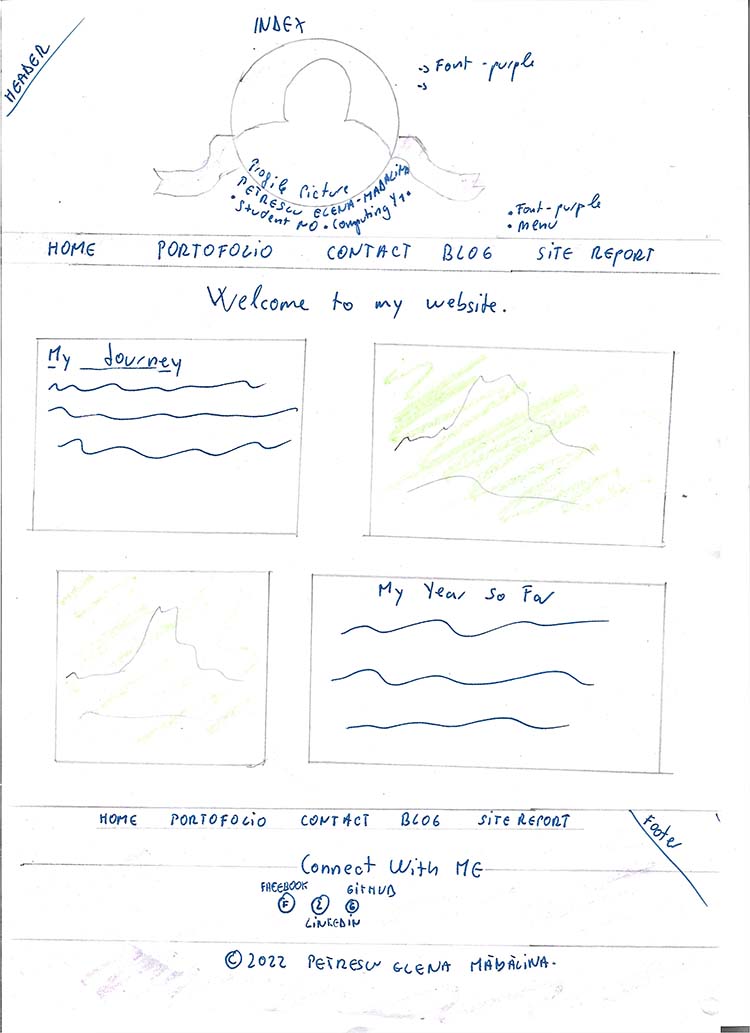 HEADER
INDEX
-> Font - purple
->
Profile Picture
PETRESCU ELENA-MADALINA
• Student NO • Computing Y1 •
• Font - purple
• menu
HOME PORTOFOLIO CONTACT BLOG SITE REPORT
Welcome to my website.
My Journey
My Year So Far
HOME PORTOFOLIO CONTACT BLOG SITE REPORT
Footer
Connect With ME
FACEBOOK GITHUB
F L G
LINKEDIN
© 2022 PETRESCU ELENA MĂDĂLINA.